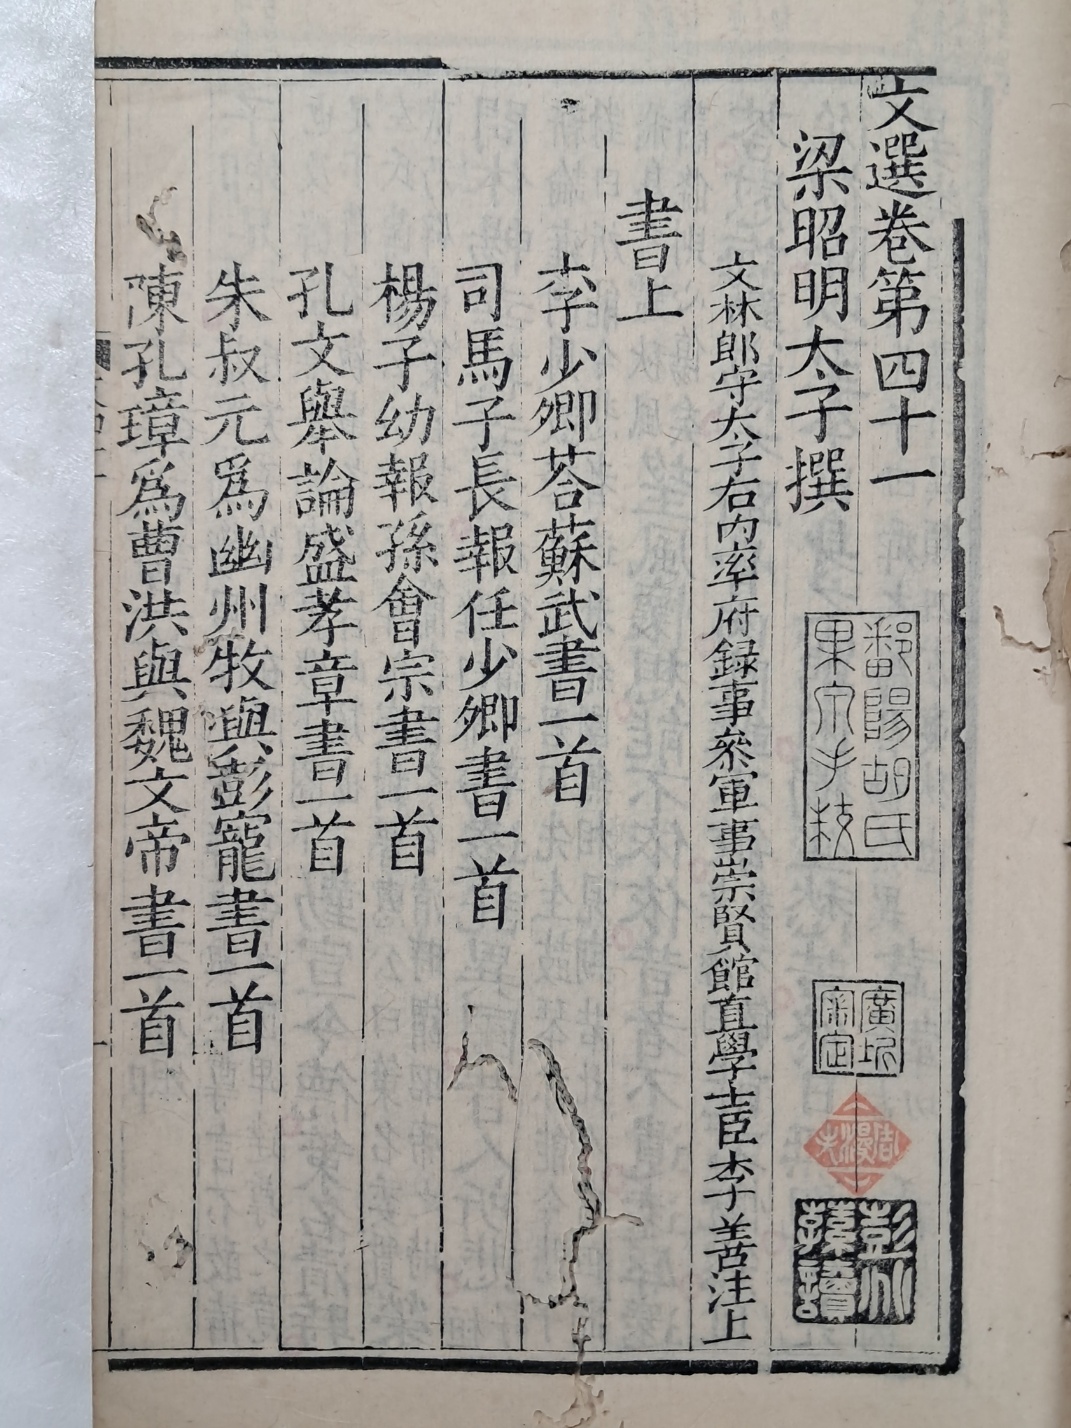 文選卷第四十一
梁昭明太子撰
文林郎守太子右內率府録事參軍事崇賢館直學士臣李善注上
書上
李少卿荅蘇武書一首
司馬子長報任少卿書一首
楊子幼報孫會宗書一首
孔文舉論盛孝章書一首
朱叔元爲幽州牧與彭寵書一首
陳孔璋爲曹洪與魏文帝書一首
鄱陽胡氏
果泉手校